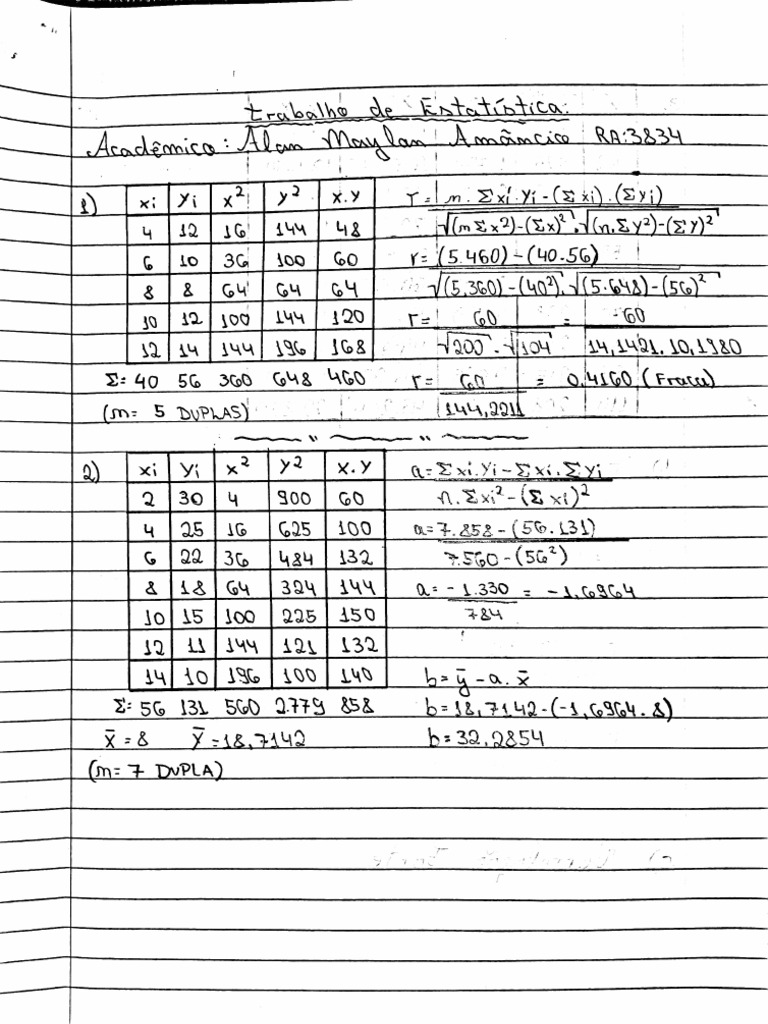 Trabalho de Estatística.
Acadêmico: Alan Maylan Amâncio RA:3834
1)
xi yi x² y² x.y
4 12 16 144 48
6 10 36 100 60
8 8 64 64 64
10 12 100 144 120
12 14 144 196 168
Σ= 40 56 360 648 460
(n= 5 DUPLAS)
r= n. Σxi.yi-(Σxi).(Σyi)
√(nΣx²)-(Σx)².√(n.Σy²)-(Σy)²
r= (5.460)-(40.56)
√(5.360)-(40²).√(5.648)-(56)²
r= 60 = 60
√200 . √104 14,1421.10,1980
r= 60 = 0,4160 (Fraca)
144,2211
2)
xi yi x² y² x.y
2 30 4 900 60
4 25 16 625 100
6 22 36 484 132
8 18 64 324 144
10 15 100 225 150
12 11 144 121 132
14 10 196 100 140
Σ= 56 131 560 2.779 858
x̄=8 ȳ=18,7142
(n= 7 DUPLA)
a= Σxi.yi-Σxi.Σyi
n.Σxi²-(Σxi)²
a= 7.858-(56.131)
7.560-(56²)
a= -1.330 = -1,6964
784
b= ȳ - a. x̄
b=18,7142-(-1,6964.8)
b=32,2854